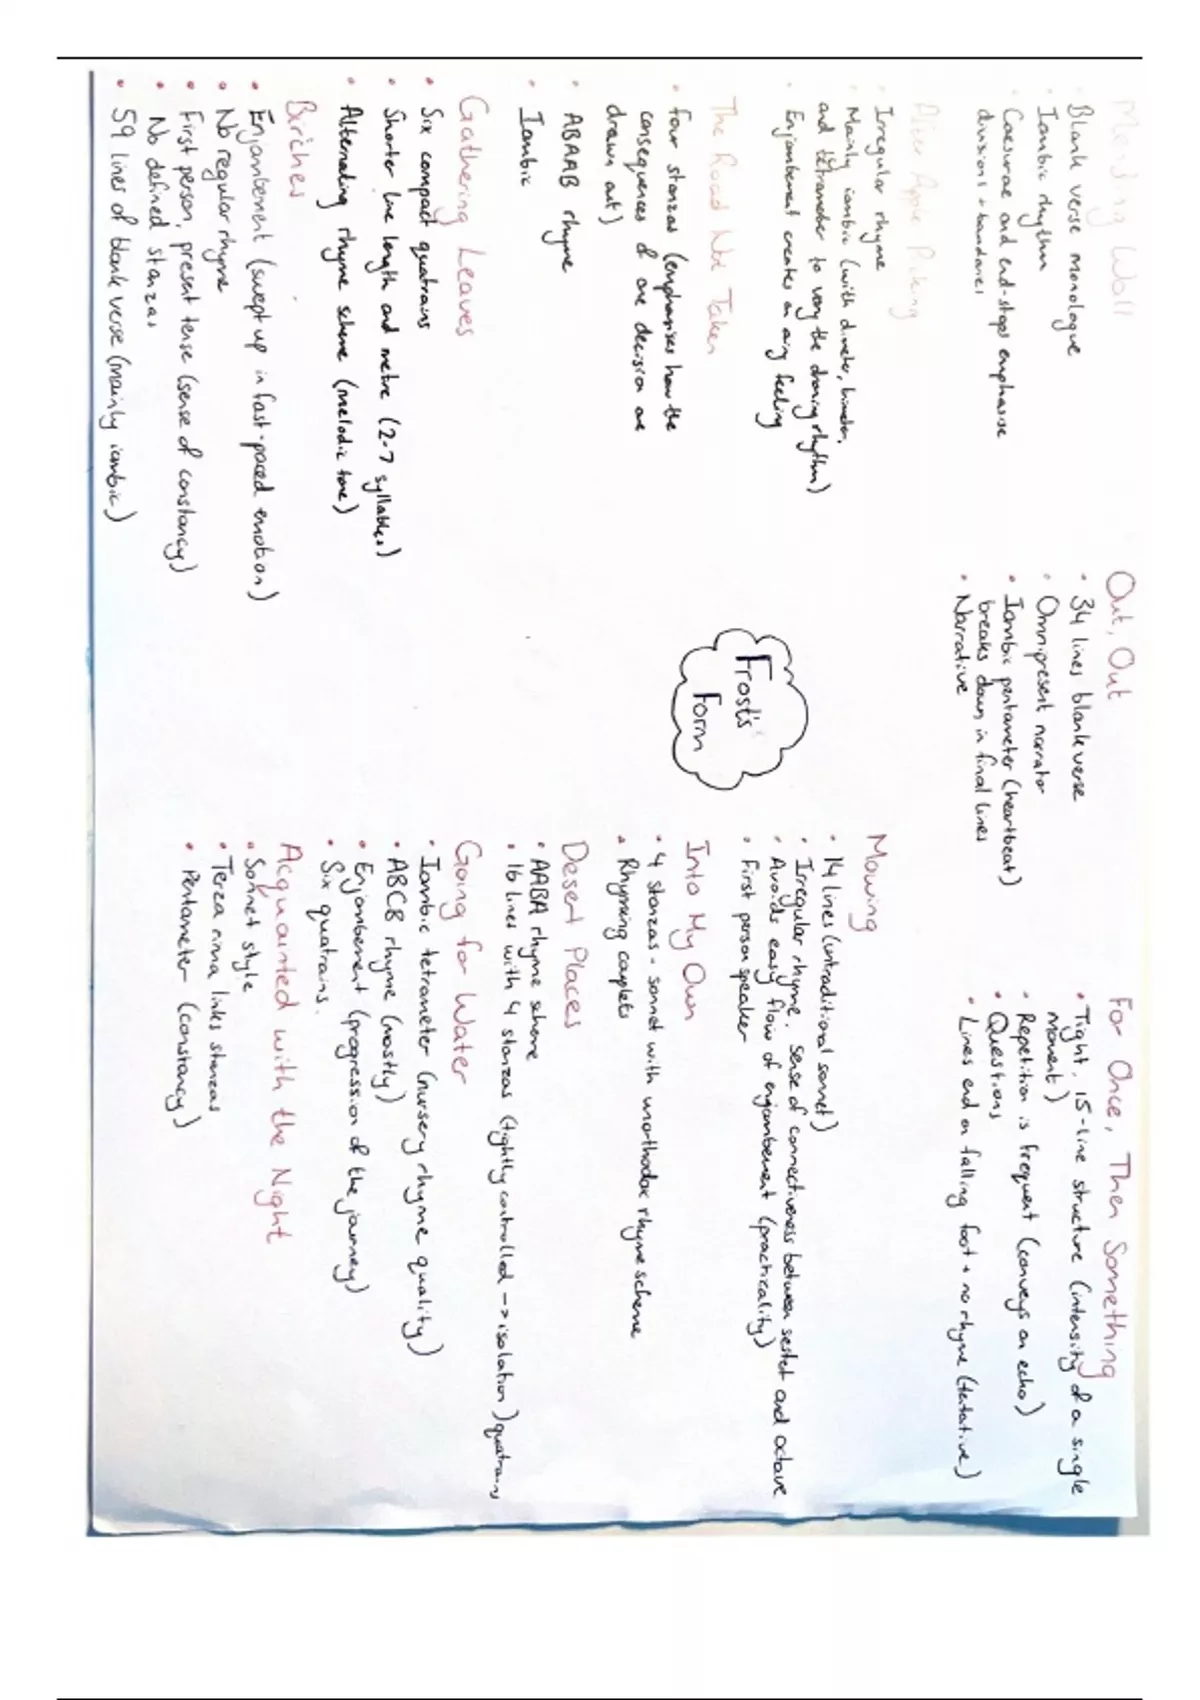 Mending Wall
• Blank verse monologue
• Iambic rhythm
• Caesurae and end-stops emphasise
divisions + boundaries
After Apple Picking
• Irregular rhyme
• Mainly iambic (with dimeter, trimeter,
and tetrameter to vary the droning rhythm)
• Enjambement creates an airy feeling
The Road Not Taken
• four stanzas (emphasises how the
consequences of one decision are
drawn out)
• ABAAB rhyme
• Iambic
Gathering Leaves
• Six compact quatrains
• Shorter line length and metre (2-7 syllables)
• Alternating rhyme scheme (melodic tone)
Birches
• Enjambement (swept up in fast-paced emotion)
• No regular rhyme
• First person, present tense (sense of constancy)
• No defined stanzas
• 59 lines of blank verse (mainly iambic)
Out, Out
• 34 lines blank verse
• Omnipresent narrator
• Iambic pentameter (heartbeat)
breaks down in final lines
• Narrative
Frost's
Form
For Once, Then Something
• Tight, 15-line structure (intensity of a single
moment)
• Repetition is frequent (conveys an echo)
• Questions
• Lines end on falling foot + no rhyme (tentative)
Mowing
• 14 lines (untraditional sonnet)
• Irregular rhyme. Sense of connectiveness between sestet and octave
• Avoids easy flow of enjambement (practicality)
• First person speaker
Into My Own
• 4 stanzas - sonnet with unorthodox rhyme scheme
• Rhyming couplets
Desert Places
• AABA rhyme scheme
• 16 lines with 4 stanzas (tightly controlled -> isolation) quatrains
Going for Water
• Iambic tetrameter (nursery rhyme quality)
• ABCB rhyme (mostly)
• Enjambement (progression of the journey)
• Six quatrains.
Acquainted with the Night
• Sonnet style
• Terza rima links stanzas
• Pentameter (constancy)